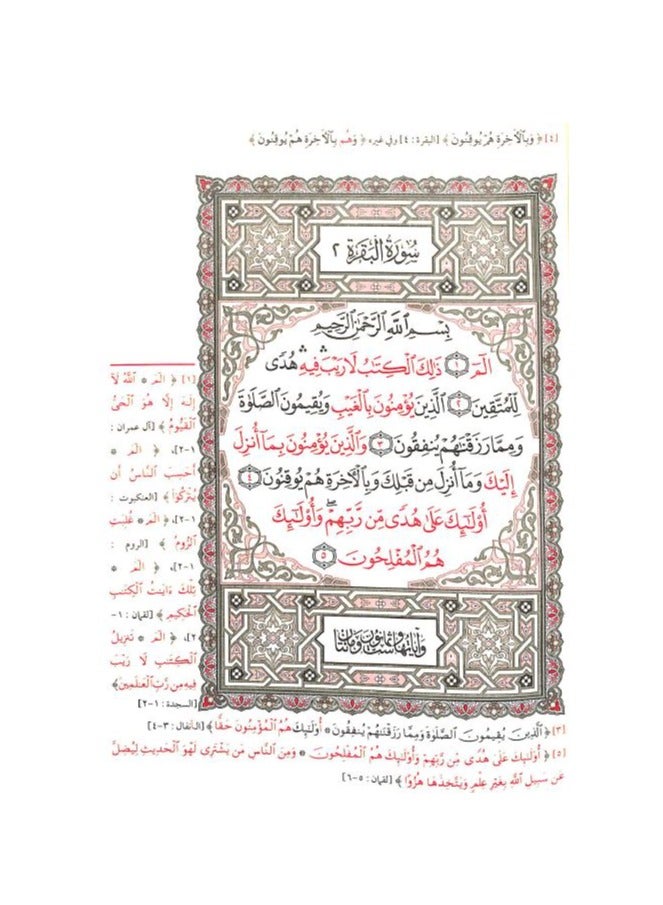 [٤] ﴿ وَبِٱلْأَخِرَةِ هُمْ يُوقِنُونَ ﴾ [البقرة : ٤] وفي غيره ﴿ وَهُم بِٱلْأَخِرَةِ هُمْ يُوقِنُونَ ﴾
سُورَةُ الْبَقَرَةِ ٢
بِسْمِ ٱللَّهِ ٱلرَّحْمَٰنِ ٱلرَّحِيمِ
الٓمٓ ١ ذَٰلِكَ ٱلْكِتَٰبُ لَا رَيْبَ ۛ فِيهِ ۛ هُدًى
لِّلْمُتَّقِينَ ٢ ٱلَّذِينَ يُؤْمِنُونَ بِٱلْغَيْبِ وَيُقِيمُونَ ٱلصَّلَوٰةَ
وَمِمَّا رَزَقْنَٰهُمْ يُنفِقُونَ ٣ وَٱلَّذِينَ يُؤْمِنُونَ بِمَآ أُنزِلَ
إِلَيْكَ وَمَآ أُنزِلَ مِن قَبْلِكَ وَبِٱلْأَخِرَةِ هُمْ يُوقِنُونَ ٤
أُو۟لَٰٓئِكَ عَلَىٰ هُدًى مِّن رَّبِّهِمْ ۖ وَأُو۟لَٰٓئِكَ
هُمُ ٱلْمُفْلِحُونَ ٥
وآياتها ست وثمانون ومائتان
[١] ﴿ الٓمٓ * ٱللَّهُ لَآ
إِلَٰهَ إِلَّا هُوَ ٱلْحَىُّ
ٱلْقَيُّومُ ﴾ [آل عمران :
١-٢]، ﴿ الٓمٓ *
أَحَسِبَ ٱلنَّاسُ أَن
يُتْرَكُوٓا۟ ﴾ [العنكبوت :
١-٢]، ﴿ الٓمٓ * غُلِبَتِ
ٱلرُّومُ ﴾ [الروم :
١-٢]، ﴿ الٓمٓ *
تِلْكَ ءَايَٰتُ ٱلْكِتَٰبِ
ٱلْحَكِيمِ ﴾ [لقمان : ١-
٢]، ﴿ الٓمٓ * تَنزِيلُ
ٱلْكِتَٰبِ لَا رَيْبَ
فِيهِ مِن رَّبِّ ٱلْعَٰلَمِينَ ﴾
[السجدة : ١-٢]
[٣] ﴿ ٱلَّذِينَ يُقِيمُونَ ٱلصَّلَوٰةَ وَمِمَّا رَزَقْنَٰهُمْ يُنفِقُونَ * أُو۟لَٰٓئِكَ هُمُ ٱلْمُؤْمِنُونَ حَقًّا ﴾ [الأنفال : ٣-٤]
[٥] ﴿ أُو۟لَٰٓئِكَ عَلَىٰ هُدًى مِّن رَّبِّهِمْ وَأُو۟لَٰٓئِكَ هُمُ ٱلْمُفْلِحُونَ * وَمِنَ ٱلنَّاسِ مَن يَشْتَرِى لَهْوَ ٱلْحَدِيثِ لِيُضِلَّ
عَن سَبِيلِ ٱللَّهِ بِغَيْرِ عِلْمٍ وَيَتَّخِذَهَا هُزُوًا ﴾ [لقمان : ٥-٦]